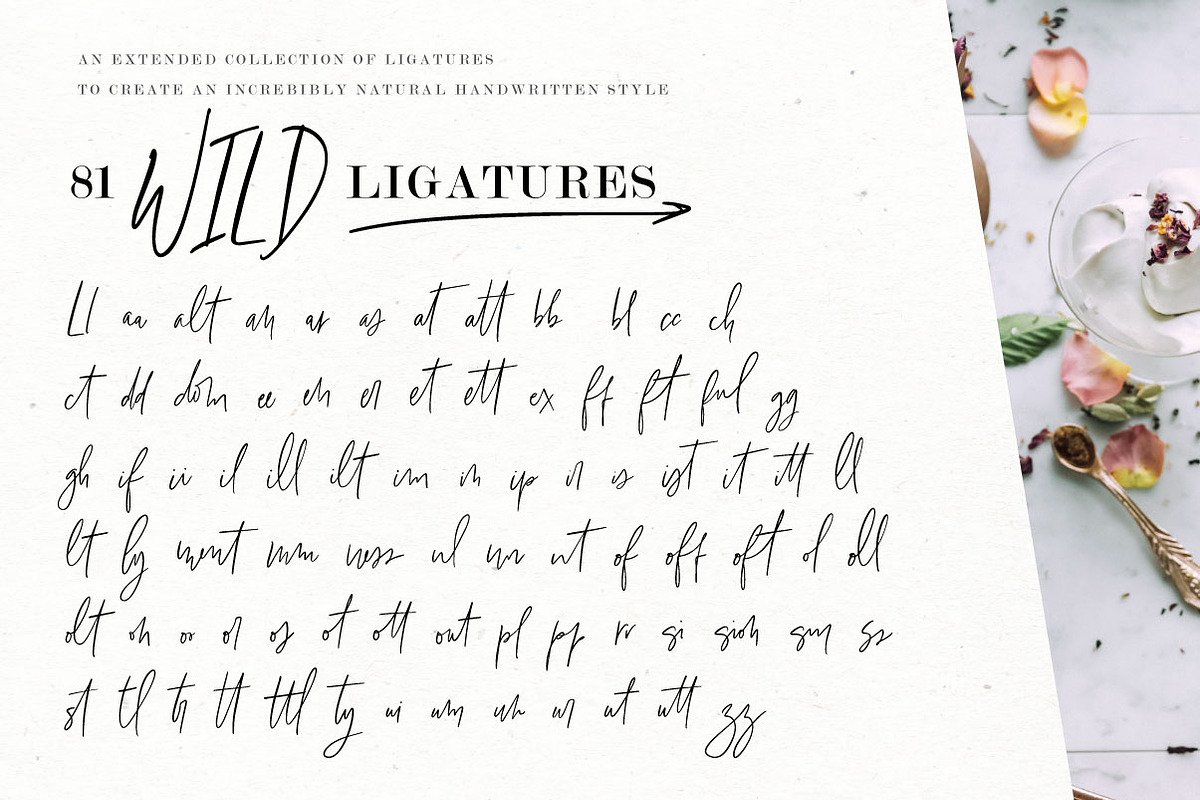 AN EXTENDED COLLECTION OF LIGATURES
TO CREATE AN INCREBIBLY NATURAL HANDWRITTEN STYLE
81 WILD LIGATURES
Ll aa alt an ar as at att bb bl cc ch
ct dd dom ee en er et ett ex ff ft ful gg
gh if ii il ill ilt im in ip ir is ist it itt ll
lt ly ment mm ness nl nn nt of off oft ol oll
olt on oo or os ot ott out pl pp rr si sion sm ss
st tl tr tt ttl ty ui um un ur ut utt zz